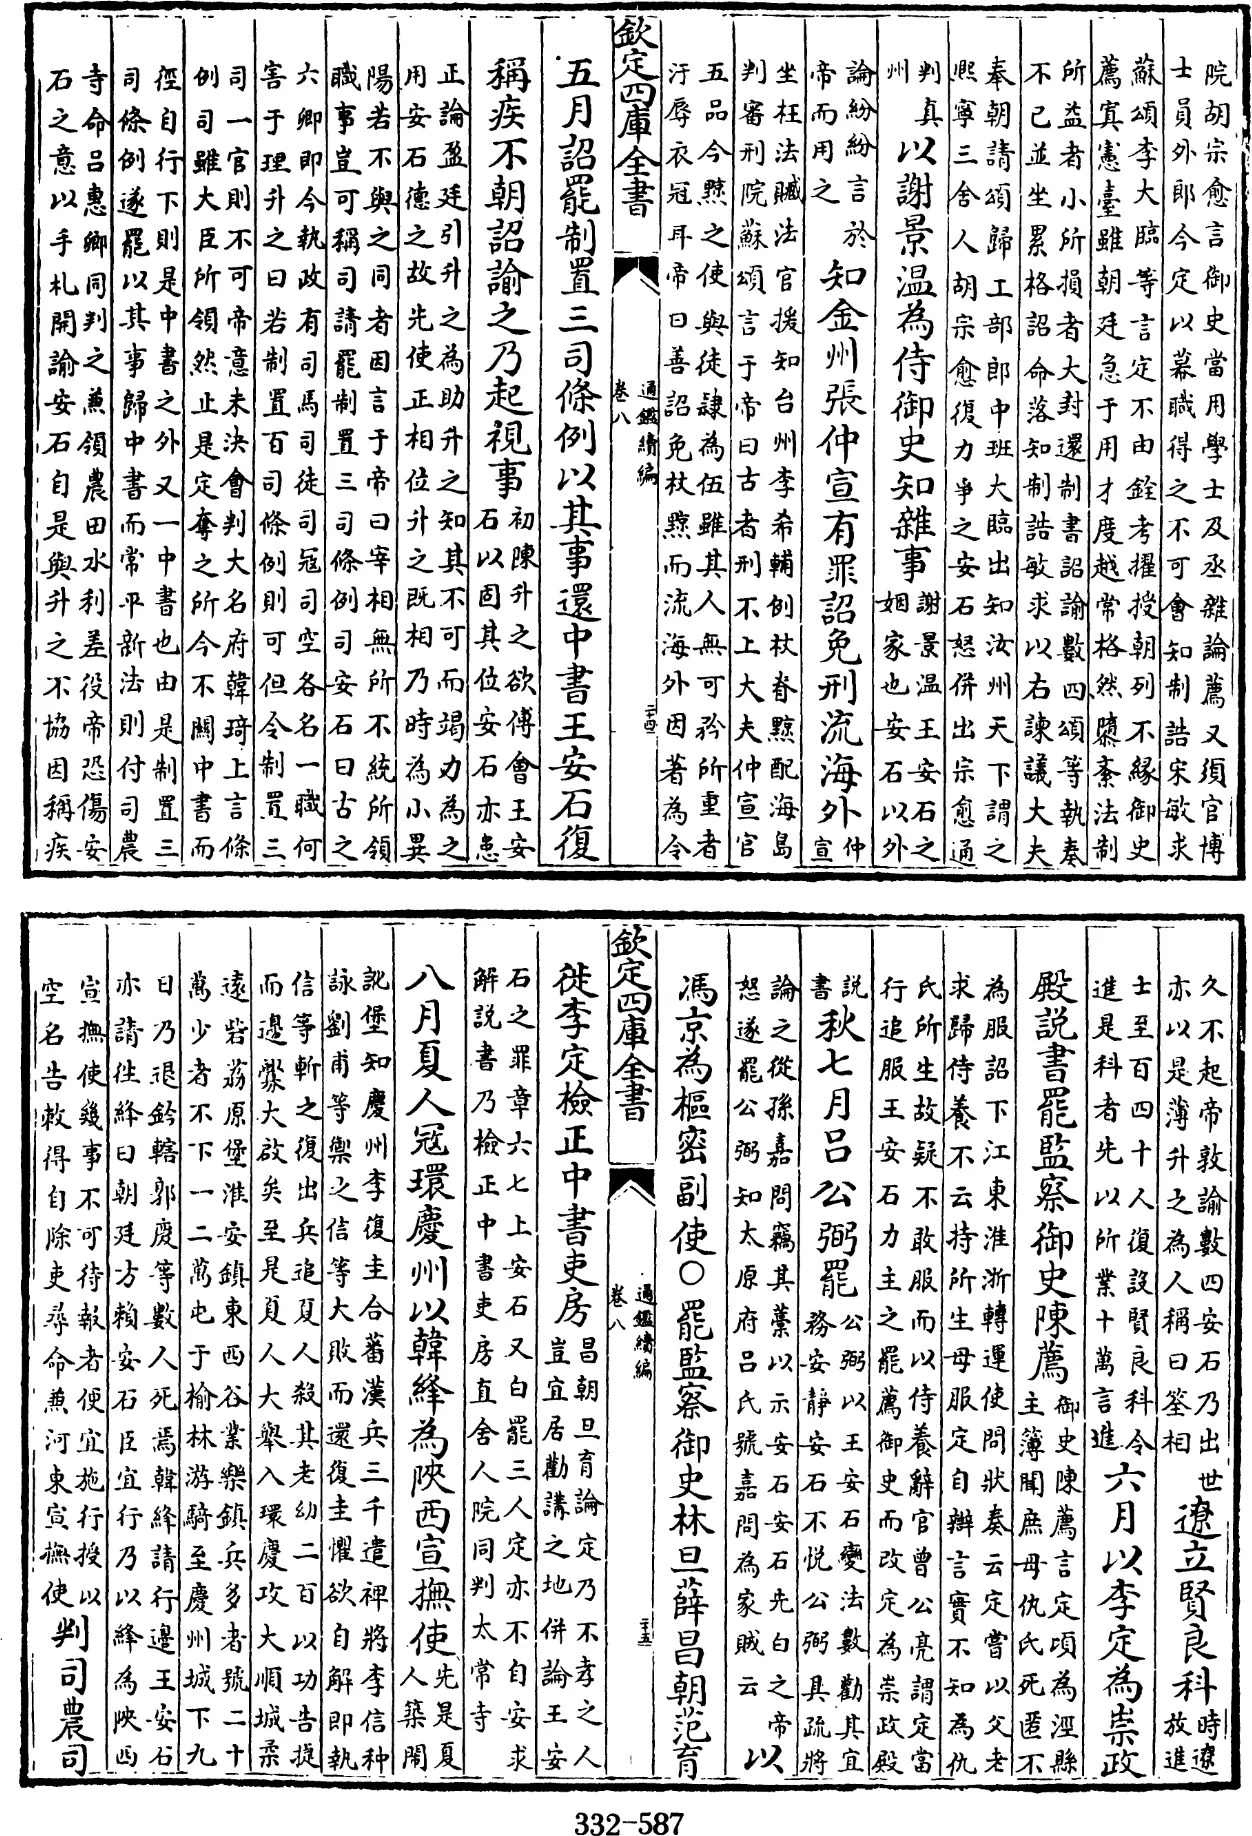 院胡宗愈言御史當用學士及丞雜論薦又須官博
士員外郎今定以幕職得之不可會知制誥宋敏求
蘇頌李大臨等言定不由銓考擢授朝列不緣御史
薦寘憲臺雖朝廷急于用才度越常格然隳紊法制
所益者小所損者大封還制書詔諭數四頌等執奏
不已並坐累格詔命落知制誥敏求以右諫議大夫
奉朝請頌歸工部郎中班大臨出知汝州天下謂之
熙寧三舍人胡宗愈復力爭之安石怒併出宗愈通
判真
州
以謝景温為侍御史知雜事
謝景温王安石之
姻家也安石以外
論紛紛言於
帝而用之
知金州張仲宣有罪詔免刑流海外
仲
宣
坐枉法贓法官援知台州李希輔例杖脊黥配海島
判審刑院蘇頌言于帝曰古者刑不上大夫仲宣官
五品今黥之使與徒隸為伍雖其人無可矜所重者
汙辱衣冠耳帝曰善詔免杖黥而流海外因著為令
欽定四庫全書
通鑑續編
卷八
二十四
五月詔罷制置三司條例以其事還中書王安石復
稱疾不朝詔諭之乃起視事
初陳升之欲傅會王安
石以固其位安石亦患
正論盈廷引升之為助升之知其不可而竭力為之
用安石德之故先使正相位升之既相乃時為小異
陽若不與之同者因言于帝曰宰相無所不統所領
職事豈可稱司請罷制置三司條例司安石曰古之
六卿即今執政有司馬司徒司冦司空各名一職何
害于理升之曰若制置百司條例則可但令制置三
司一官則不可帝意未決會判大名府韓琦上言條
例司雖大臣所領然止是定奪之所今不關中書而
徑自行下則是中書之外又一中書也由是制置三
司條例遂罷以其事歸中書而常平新法則付司農
寺命吕惠卿同判之兼領農田水利差役帝恐傷安
石之意以手札開諭安石自是與升之不協因稱疾
久不起帝敦諭數四安石乃出世
亦以是薄升之為人稱曰筌相
遼立賢良科
時遼
放進
士至百四十人復設賢良科令
進是科者先以所業十萬言進
六月以李定為崇政
殿說書罷監察御史陳薦
御史陳薦言定頃為涇縣
主簿聞庶母仇氏死匿不
為服詔下江東淮浙轉運使問狀奏云定嘗以父老
求歸侍養不云持所生母服定自辯言實不知為仇
氏所生故疑不敢服而以侍養辭官曾公亮謂定當
行追服王安石力主之罷薦御史而改定為崇政殿
説
書
秋七月吕公弼罷
公弼以王安石變法數勸其宜
務安靜安石不悦公弼具疏將
論之從孫嘉問竊其藁以示安石安石先白之帝
怒遂罷公弼知太原府吕氏號嘉問為家賊云
以
馮京為樞密副使○罷監察御史林旦薛昌朝范育
欽定四庫全書
通鑑續編
卷八
二十五
徙李定檢正中書吏房
昌朝旦育論定乃不孝之人
豈宜居勸講之地併論王安
石之罪章六七上安石又白罷三人定亦不自安求
解説書乃檢正中書吏房直舍人院同判太常寺
八月夏人冦環慶州以韓絳為陝西宣撫使
先是夏
人築鬧
訛堡知慶州李復圭合蕃漢兵三千遣裨將李信种
詠劉甫等禦之信等大敗而還復圭懼欲自解即執
信等斬之復出兵追夏人殺其老幼二百以功告捷
而邊釁大啟矣至是夏人大舉入環慶攻大順城柔
遠砦荔原堡淮安鎮東西谷業樂鎮兵多者號二十
萬少者不下一二萬屯于榆林游騎至慶州城下九
日乃退鈐轄郭慶等數人死焉韓絳請行邊王安石
亦請徃絳曰朝廷方賴安石臣宜行乃以絳為陝西
宣撫使幾事不可待報者便宜施行授以
空名告敕得自除吏尋命兼河東宣撫使
判司農司
332-587